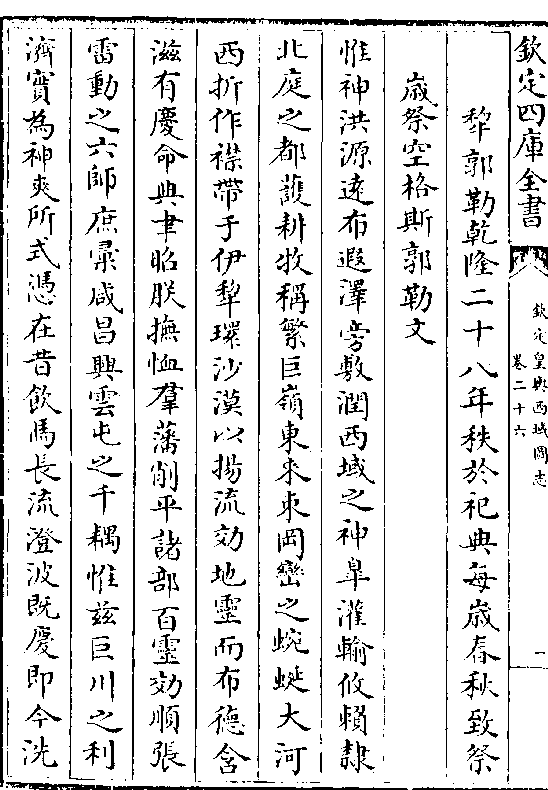 欽定四庫全書
欽定皇輿西域圖志
卷二十六
一
犂郭勒乾隆二十八年秩於祀典每歲春秋致祭
歲祭空格斯郭勒文
惟神洪源遠布遐澤旁敷潤西域之神臯灌輸攸賴隷
北庭之都䕶耕牧稱繁巨嶺東來束岡巒之蜿蜒大河
西折作襟帶于伊犂環沙漠以揚流効地靈而布德含
滋有慶命典聿昭朕撫恤羣藩削平諸部百靈効順張
雷動之六師庶彚咸昌興雲屯之千耦惟兹巨川之利
濟實為神爽所式憑在昔飲馬長流澄波既慶即今洗